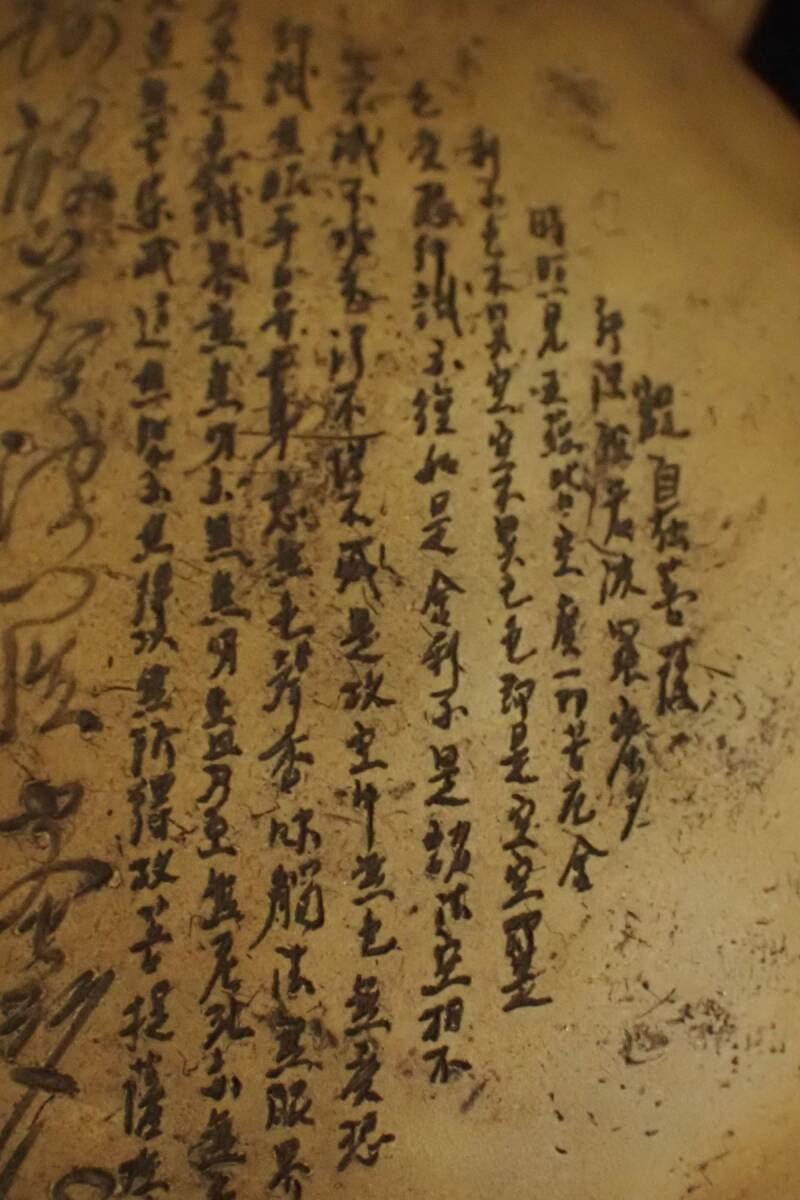 觀自在菩薩
行深般若波羅蜜多
時照見五蘊皆空度一切苦厄舍
利子色不異空空不異色色即是空空即是
色受想行識亦復如是舍利子是諸法空相不
生不滅不垢不淨不增不減是故空中無色無受想
行識無眼耳鼻舌身意無色聲香味觸法無眼界
乃至無意識界無無明亦無無明盡乃至無老死亦無
無苦集滅道無智亦無得以無所得故菩提薩埵
般若波羅蜜多